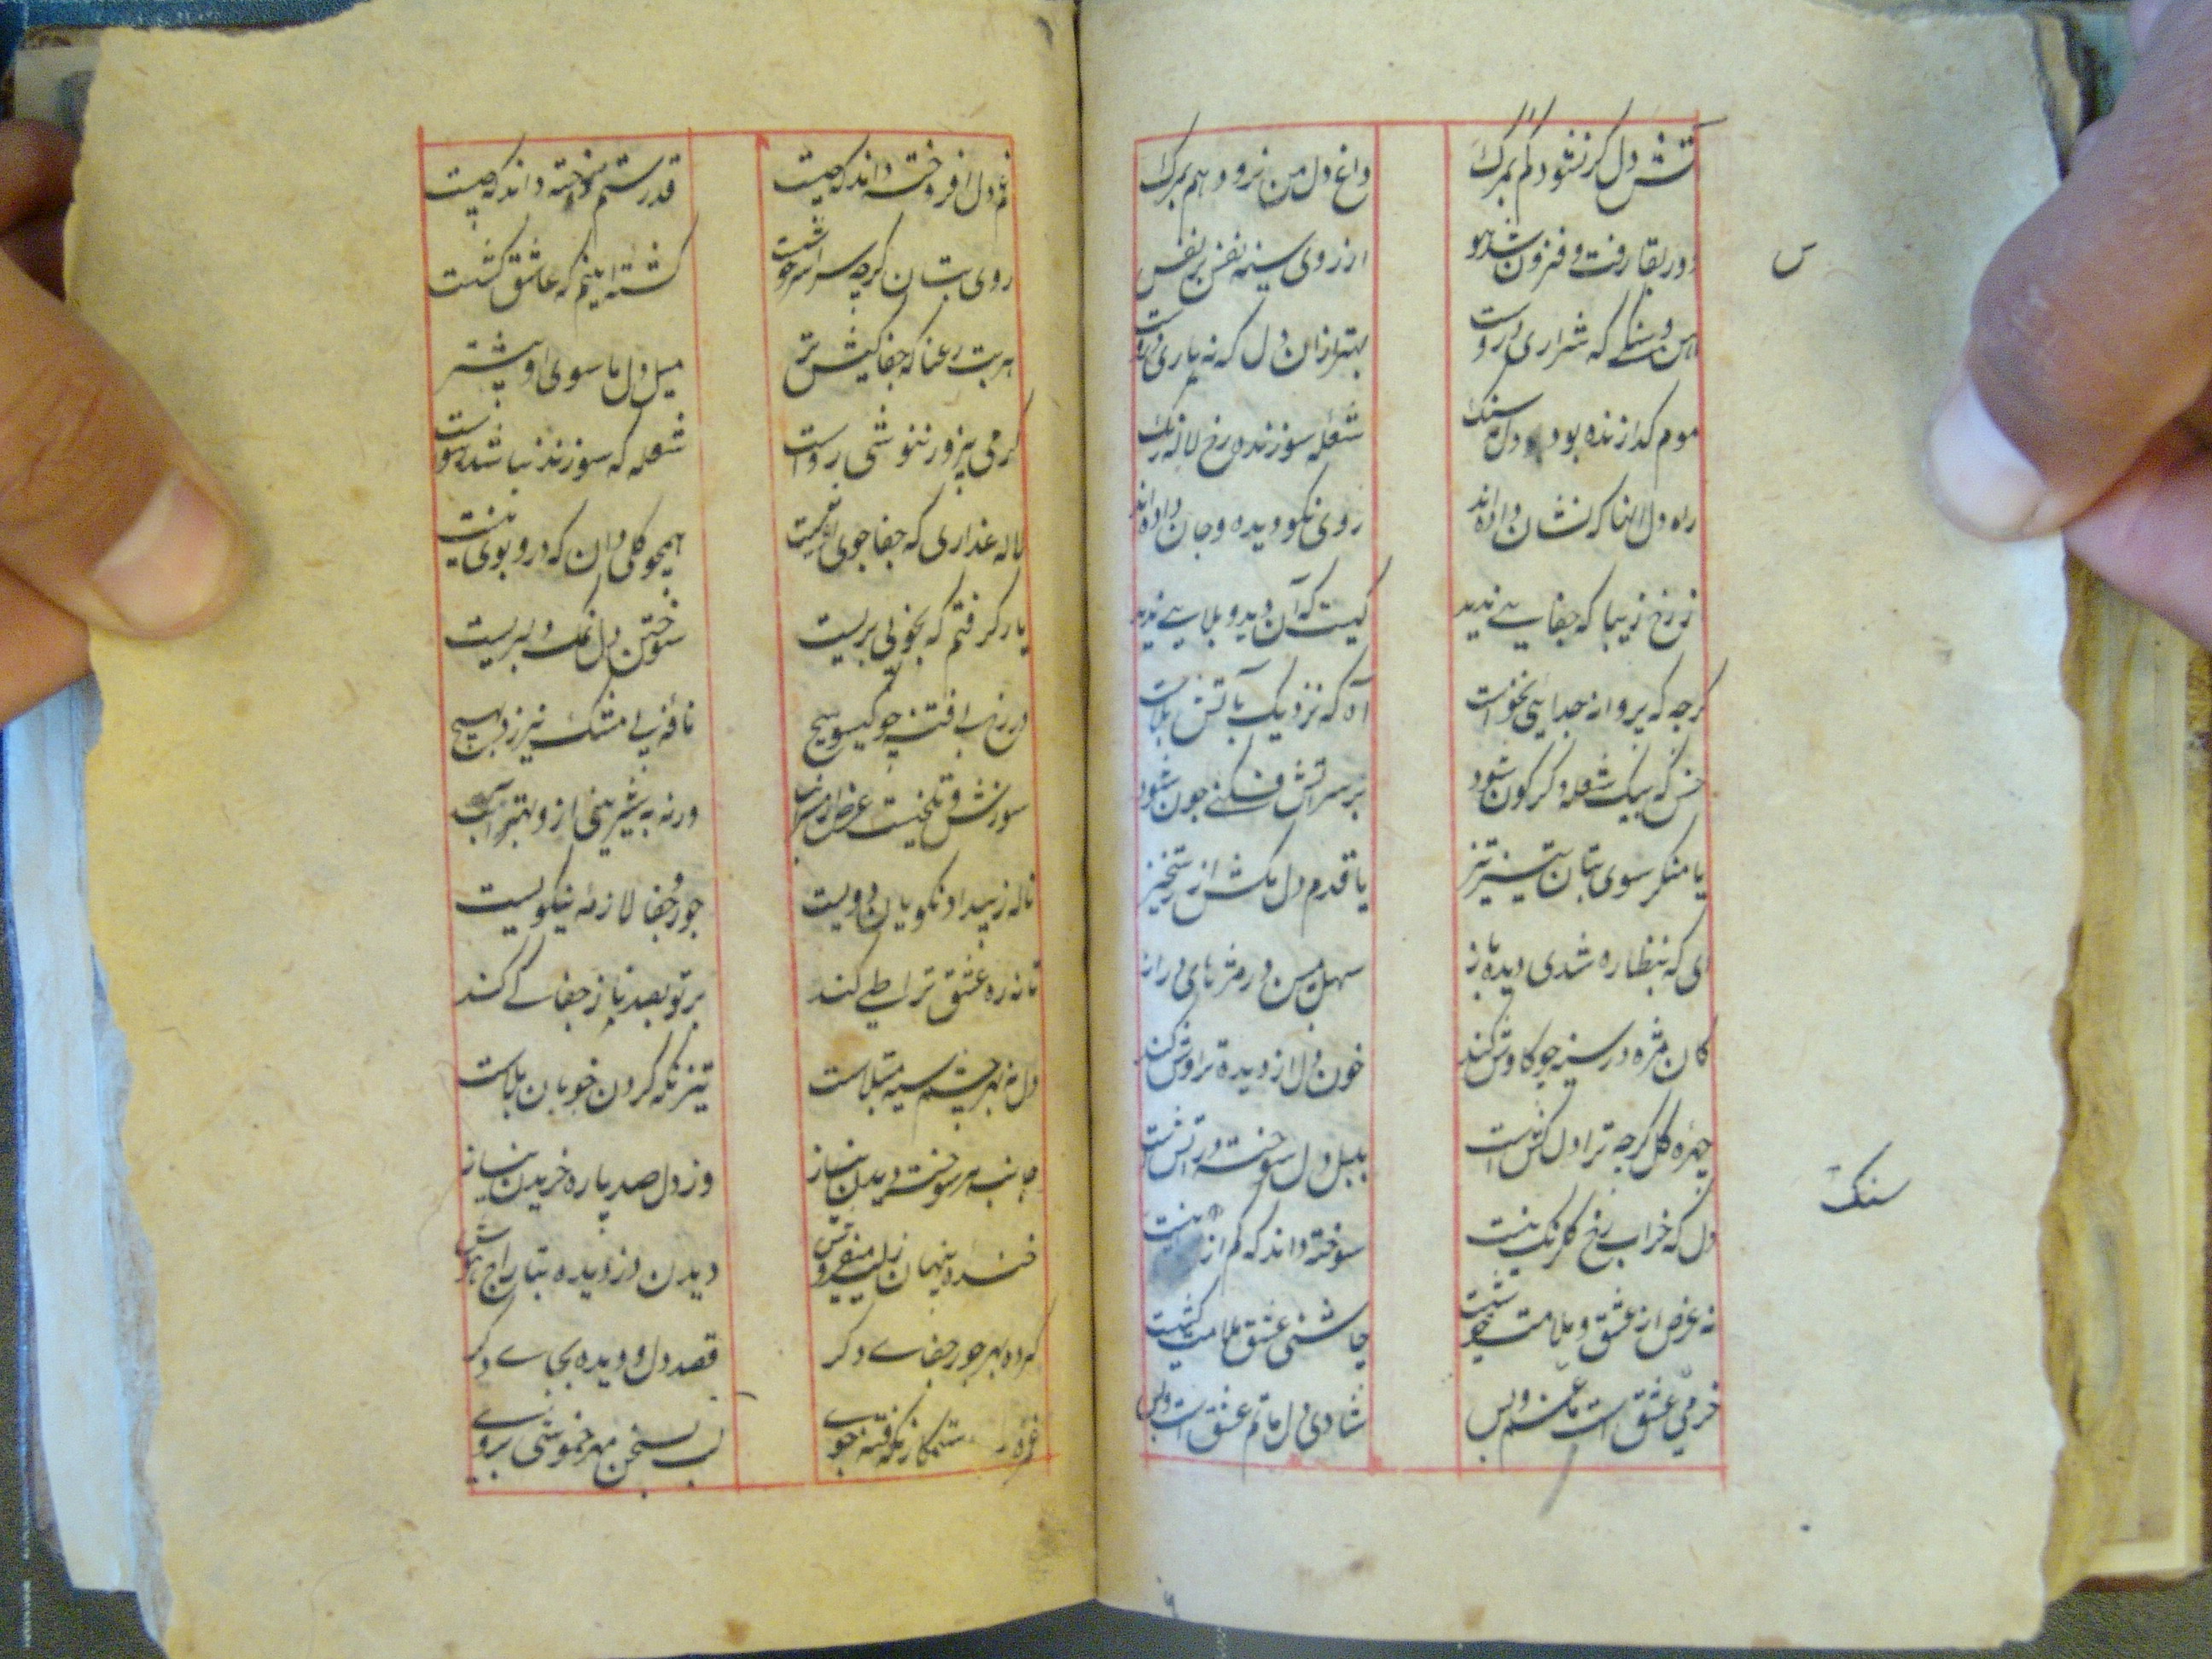 آتش دل کر نشود کم بمرک داغ دل من نرود هم بمرک
دور بقا رفت و فزون شد هوس از زوی سینه نفس بر نفس
آهن و سنکی که شراری دروست بهتر ازان دل که نه یاری دروست
موم کدازنده بود دل نه سنک شعله سوزنده رخ لاله رنک
راه دل آنها که نشان داده‌اند روی نکو دیده و جان داده‌اند
زان رخ زیبا که جفایی ندید کیست که آن دید و بلایی ندید
کرچه که پروانه جدایی نخواست آه که نزدیک بآتش بلاست
خس که بیک شعله دکرکون شود بر سر آتش فکنی چون شود
یا منکر سوی بتان تیز تیز یا قدم دل مکش از رستخیز
ای که بنظاره شدی دیده باز سهل مبین در مژه‌های دراز
کان مژه در سینه چو کاوش کند خون دل از دیده تراوش کند
چهره کل کرچه ترا دلکش است بلبل دل سوخته در آتش است
سنک
دل که خراب رخ کلرنک نیست سوخته داند که کم از نیست
نه غرض از عشق و ملامت خوشست چاشنی عشق ملامت کشست
خرمی عشق است غم و بس شادی دل ماتم عشق است و بس
غم دل افروخته داند که چیست قدر ستم سوخته داند که چیست
روی بتان کرچه سراسر خوشست کشته اینم که عاشق کشست
هر بت رعنا که جفا کیش تر میل دل ما سوی او بیشتر
کرمی پرزور ننوشی رواست شعله که سوزنده نباشد
لاله عذاری که جفاجوی نیست همچو کلی دان که درو بوی نیست
یار کرفتم که بخوبی پریست سوختن دل نمک دلبریست
در رخ بی فتنه چو کیسو مپیچ نافه بی مشک نیرزد بهیچ
سوزش و تلخیست غرض از شراب ورنه به شیرینی ازو بهتر آب
ناله ز بیداد نکویان دوییست جور و جفا لازمه نیکوییست
تا نه ره عشق ترا طی کند بر تو بصد ناز جفا کی کند
دل نه بهر چشم سیه مبتلاست تیز نکه کردن خوبان بلاست
جانب هر سوخته دیدن بناز وز دل صد پاره خریدن نیاز
خنده پنهان ز لب میفروش دیدن دزدیده بتاراج هوش
کرده بهر جور جفای دکر قصد دل و دیده بجای دکر
غمزه ستمکار نکه فتنه جوی لب بسخن مهر خموشی بروی